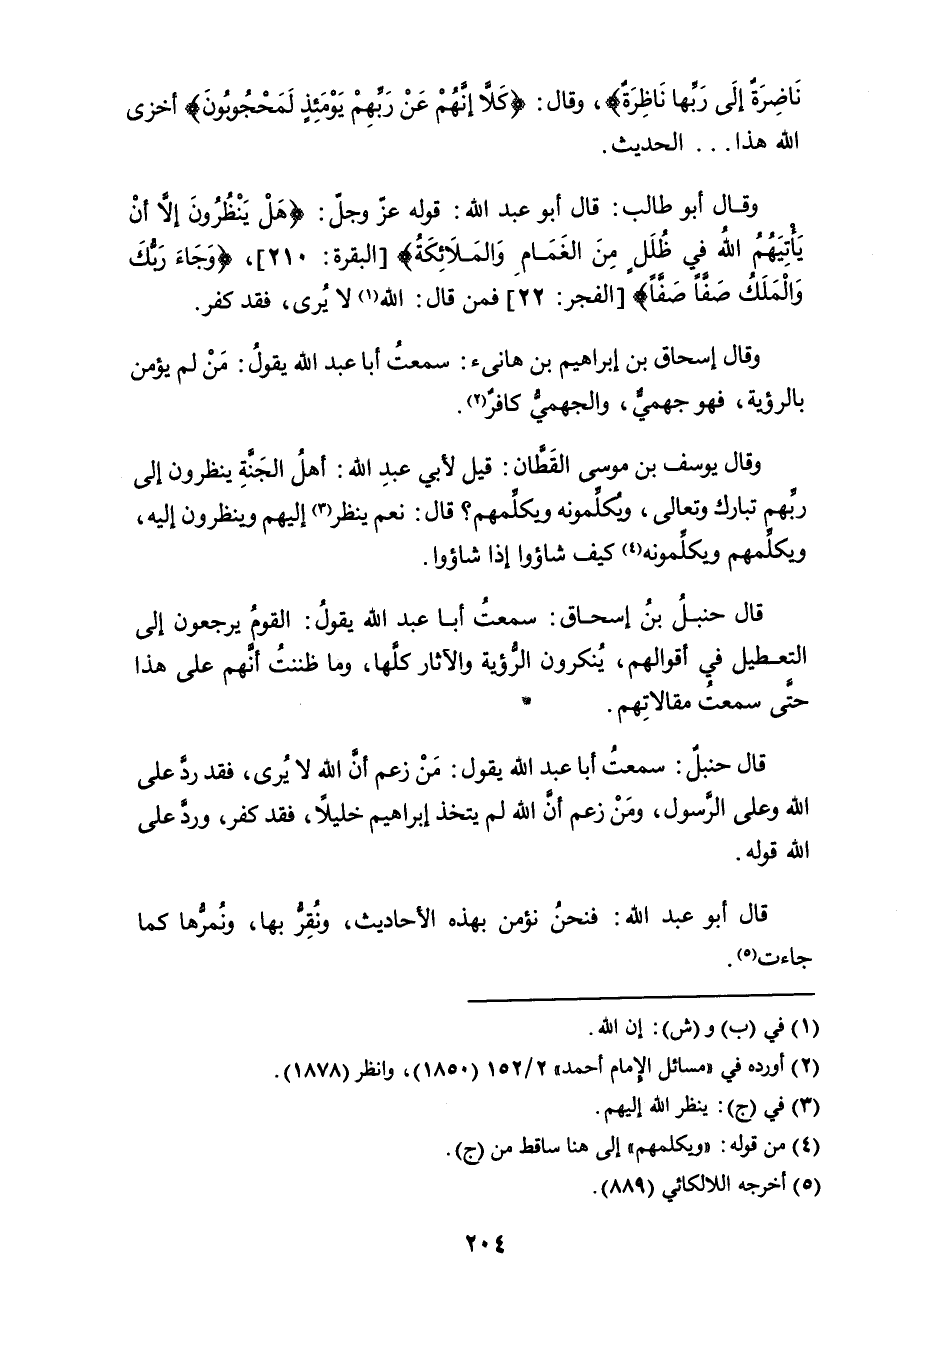 نَاضِرَةٌ إِلَى رَبِّها نَاظِرَةٌ﴾، وقال: ﴿كَلَّا إنَّهُمْ عَنْ رَبِّهِمْ يَوْمَئِذٍ لَمَحْجُوبُونَ﴾ أخزى
الله هذا... الحديث.
وقـال أبو طالب: قال أبو عبد الله: قوله عزّ وجلّ: ﴿هَلْ يَنْظُرُونَ إلاَّ أنْ
يَأْتِيَهُمُ اللهُ في ظُلَلٍ مِنَ الغَمَـامِ وَالمَـلَائِكَةُ﴾ [البقرة: ٢١٠]، ﴿وَجَاءَ رَبُّكَ
وَالْمَلَكُ صَفَّاً صَفَّاً﴾ [الفجر: ٢٢] فمن قال: الله(١) لا يُرى، فقد كفر.
وقال إسحاق بن إبراهيم بن هانىء: سمعتُ أبا عبد الله يقولُ: مَنْ لم يؤمن
بالرؤية، فهو جهميٌّ، والجهميُّ كافرٌ(٢).
وقال يوسف بن موسى القَطَّان: قيل لأبي عبدِ الله: أهلُ الجَنَّةِ ينظرون إلى
ربِّهم تبارك وتعالى، ويُكلِّمونه ويكلِّمهم؟ قال: نعم ينظر(٣) إليهم وينظرون إليه،
ويكلِّمهم ويكلِّمونه(٤) كيف شاؤوا إذا شاؤوا.
قال حنبـلُ بنُ إسحـاق: سمعتُ أبـا عبد الله يقولُ: القومُ يرجعون إلى
التعـطيل في أقوالهم، يُنكرون الرُّؤية والآثار كلَّها، وما ظننتُ أنَّهم على هذا
حتَّى سمعتُ مقالاتِهم.
قال حنبلٌ: سمعتُ أبا عبد الله يقول: مَنْ زعم أنَّ الله لا يُرى، فقد ردَّ على
الله وعلى الرَّسول، ومَنْ زعم أنَّ الله لم يتخذ إبراهيم خليلًا، فقد كفر، وردَّ على
الله قوله.
قال أبو عبد الله: فنحنُ نؤمن بهذه الأحاديث، ونُقِرُّ بها، ونُمرُّها كما
جاءت(٥).
(١) في (ب) و(ش): إن الله.
(٢) أورده في «مسائل الإمام أحمد» ١٥٢/٢ (١٨٥٠)، وانظر (١٨٧٨).
(٣) في (ج): ينظر الله إليهم.
(٤) من قوله: «ويكلمهم» إلى هنا ساقط من (ج).
(٥) أخرجه اللالكائي (٨٨٩).
٢٠٤